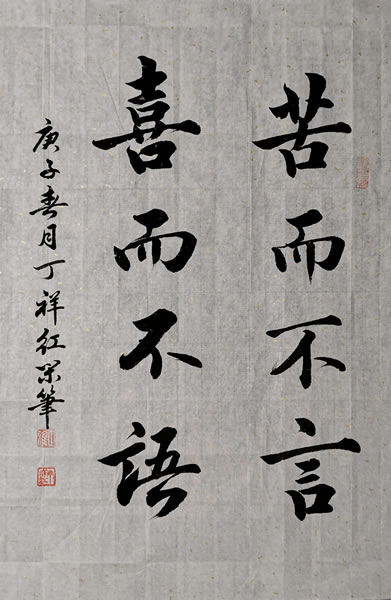 苦而不言
喜而不語
庚子春月丁祥红呆筆